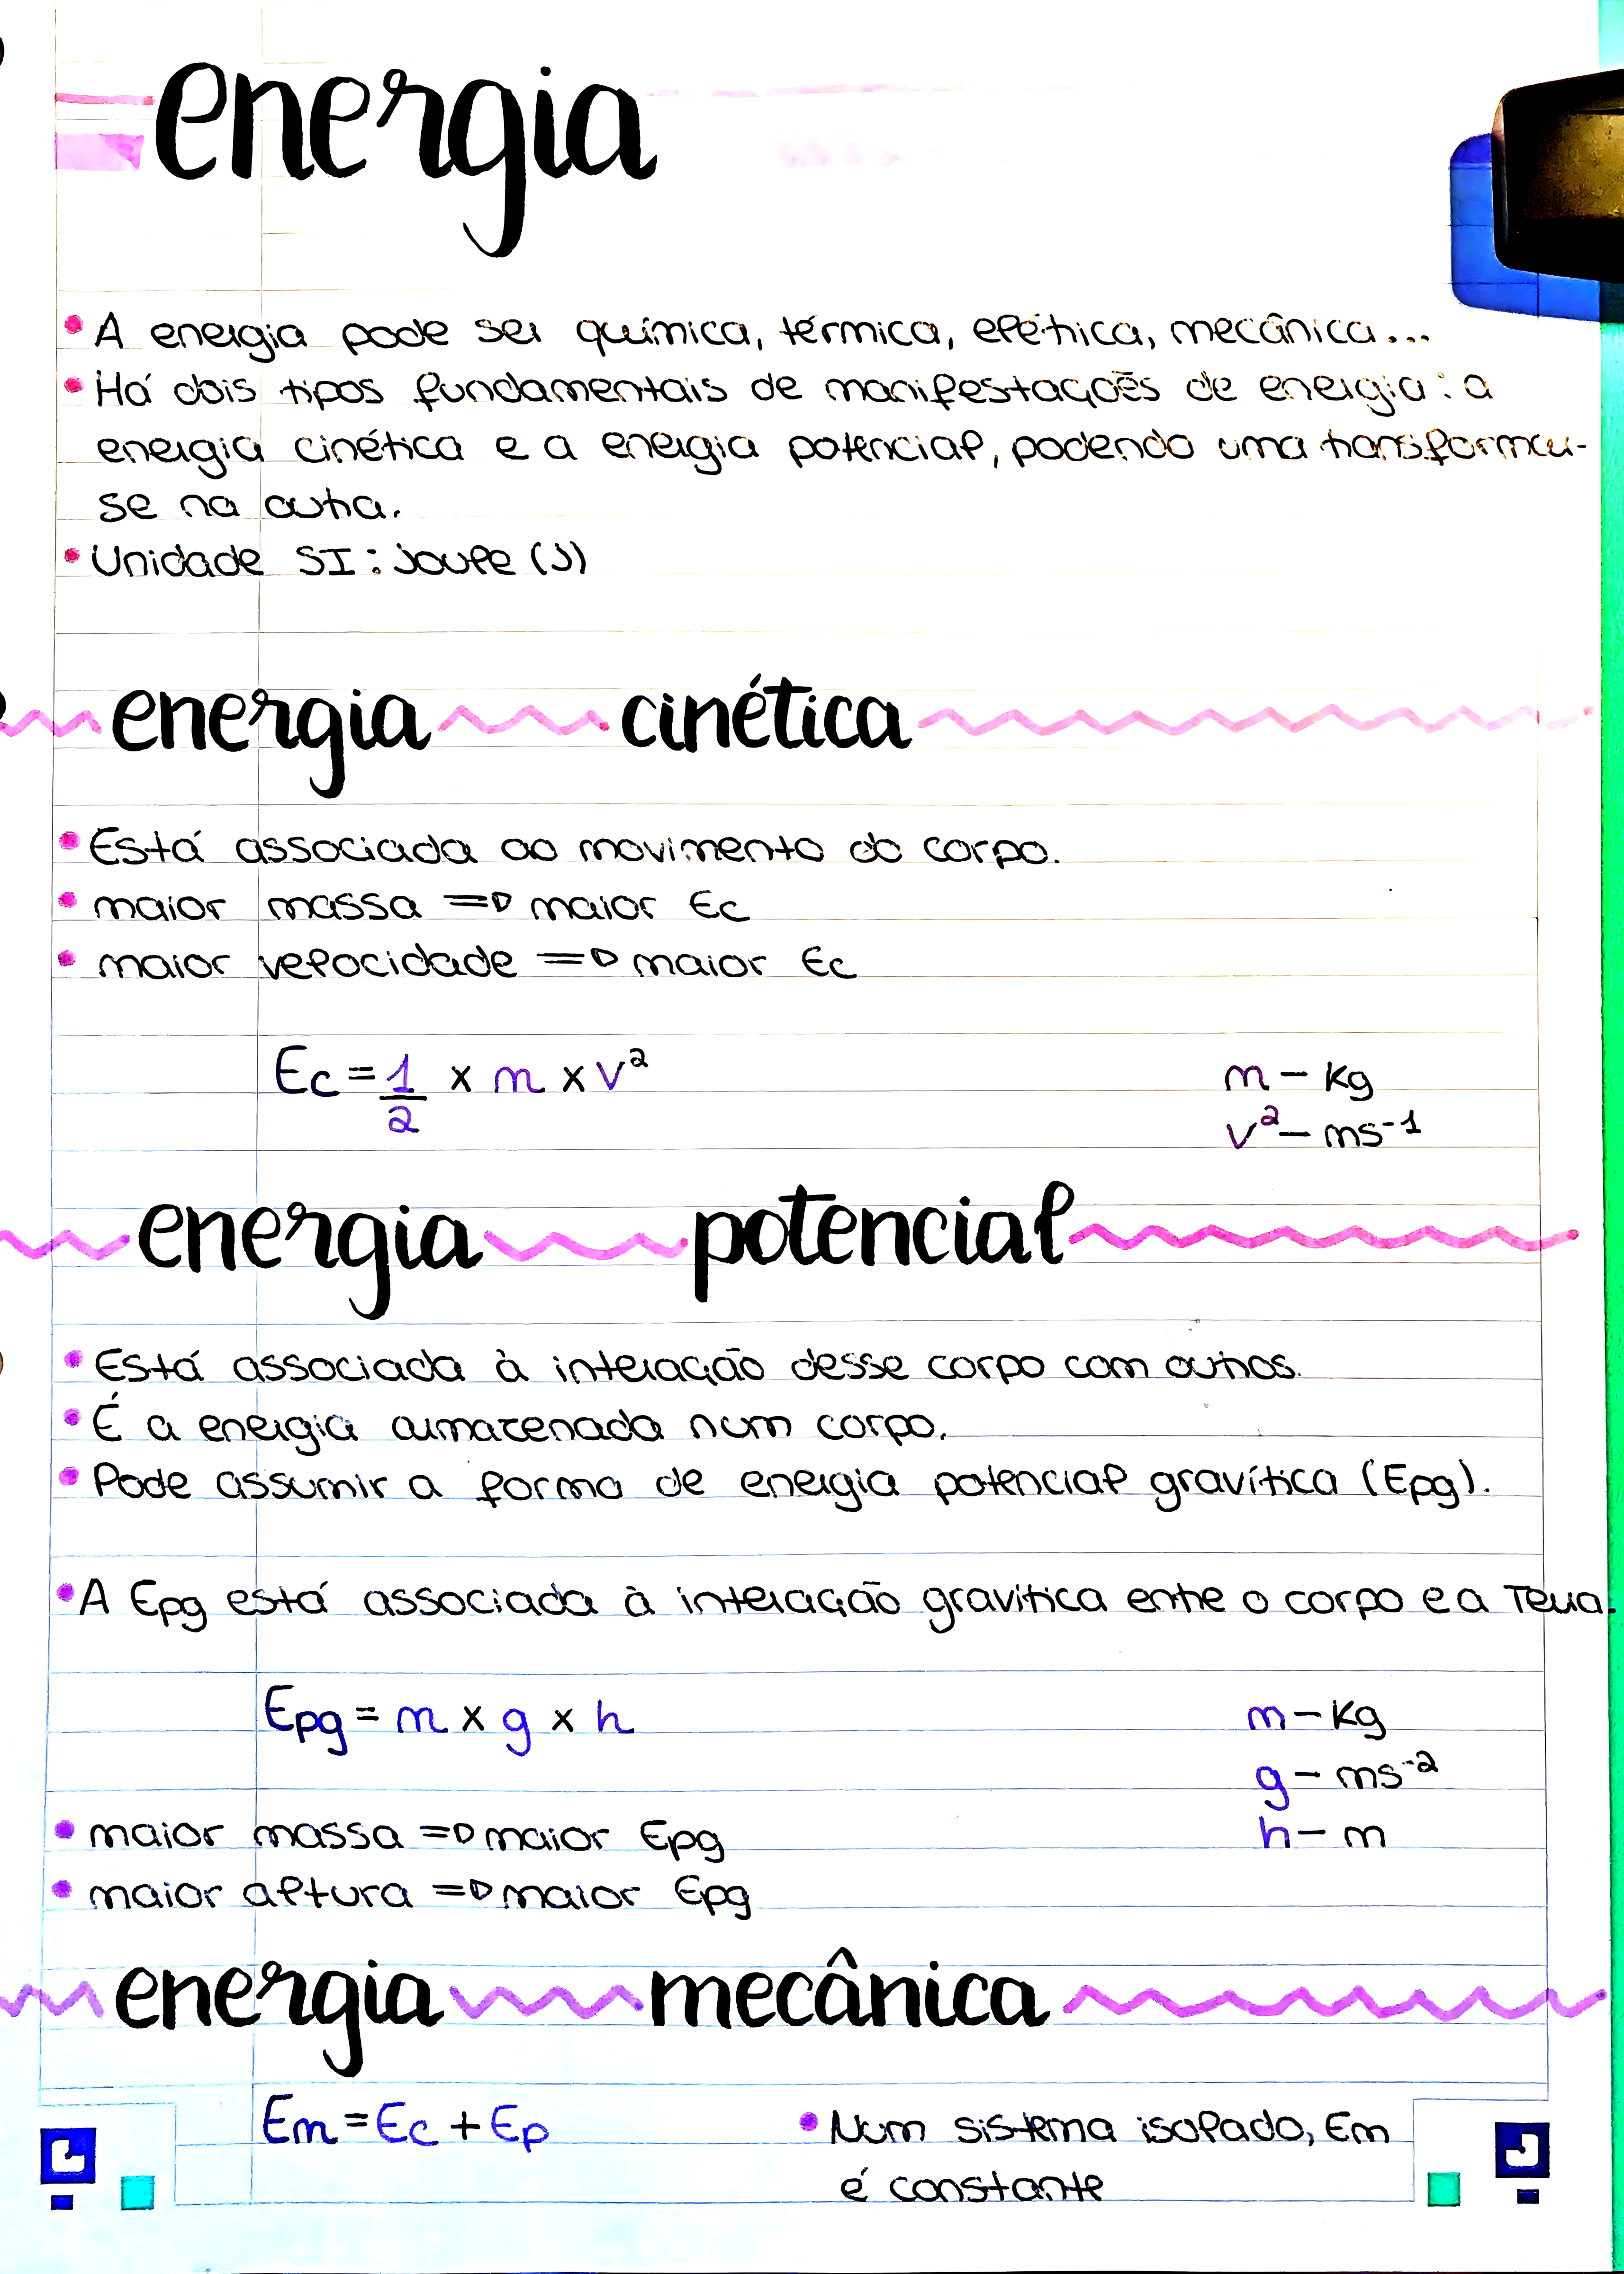 energia
• A energia pode ser química, térmica, elétrica, mecânica...
• Há dois tipos fundamentais de manifestações de energia: a
energia cinética e a energia potencial, podendo uma transformar-
se na outra.
• Unidade SI: joule (J)
energia cinética
• Está associada ao movimento do corpo.
• maior massa => maior Ec
• maior velocidade => maior Ec
Ec = 1/2 × m × v²
m - kg
v² - ms⁻¹
energia potencial
• Está associada à interação desse corpo com outros.
• É a energia armazenada num corpo.
• Pode assumir a forma de energia potencial gravítica (Epg).
• A Epg está associada à interação gravítica entre o corpo e a Terra.
Epg = m × g × h
m - kg
g - ms⁻²
h - m
• maior massa => maior Epg
• maior altura => maior Epg
energia mecânica
Em = Ec + Ep
• Num sistema isolado, Em
é constante